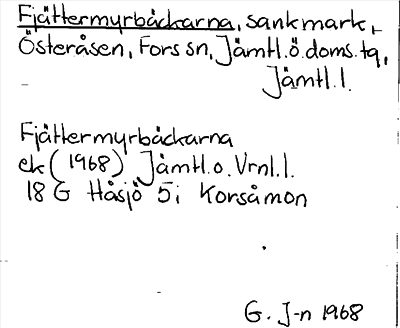 Fjättermyrbäckarna, sankmark,
Österåsen, Fors sn, Jämtl.ö.doms.tg,
Jämtl.l.
Fjättermyrbäckarna
ek (1968) Jämtl.o.Vrnl.l.
18 G Håsjö 5i Korsåmon
G. J-n 1968